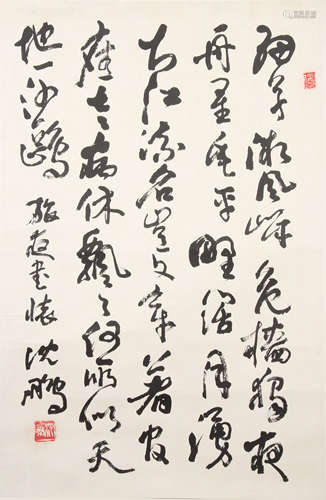 細草微風岸危檣獨夜
舟星垂平野闊月湧
大江流名豈文章著官
應老病休飄々何所似天
地一沙鷗 旅夜書懷 沈鵬